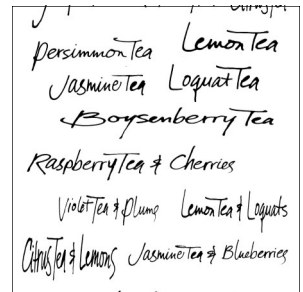 Persimmon Tea Lemon Tea
Jasmine Tea Loquat Tea
Boysenberry Tea
Raspberry Tea & Cherries
Violet Tea & Plums Lemon Tea & Loquats
Citrus Tea & Lemons Jasmine Tea & Blueberries